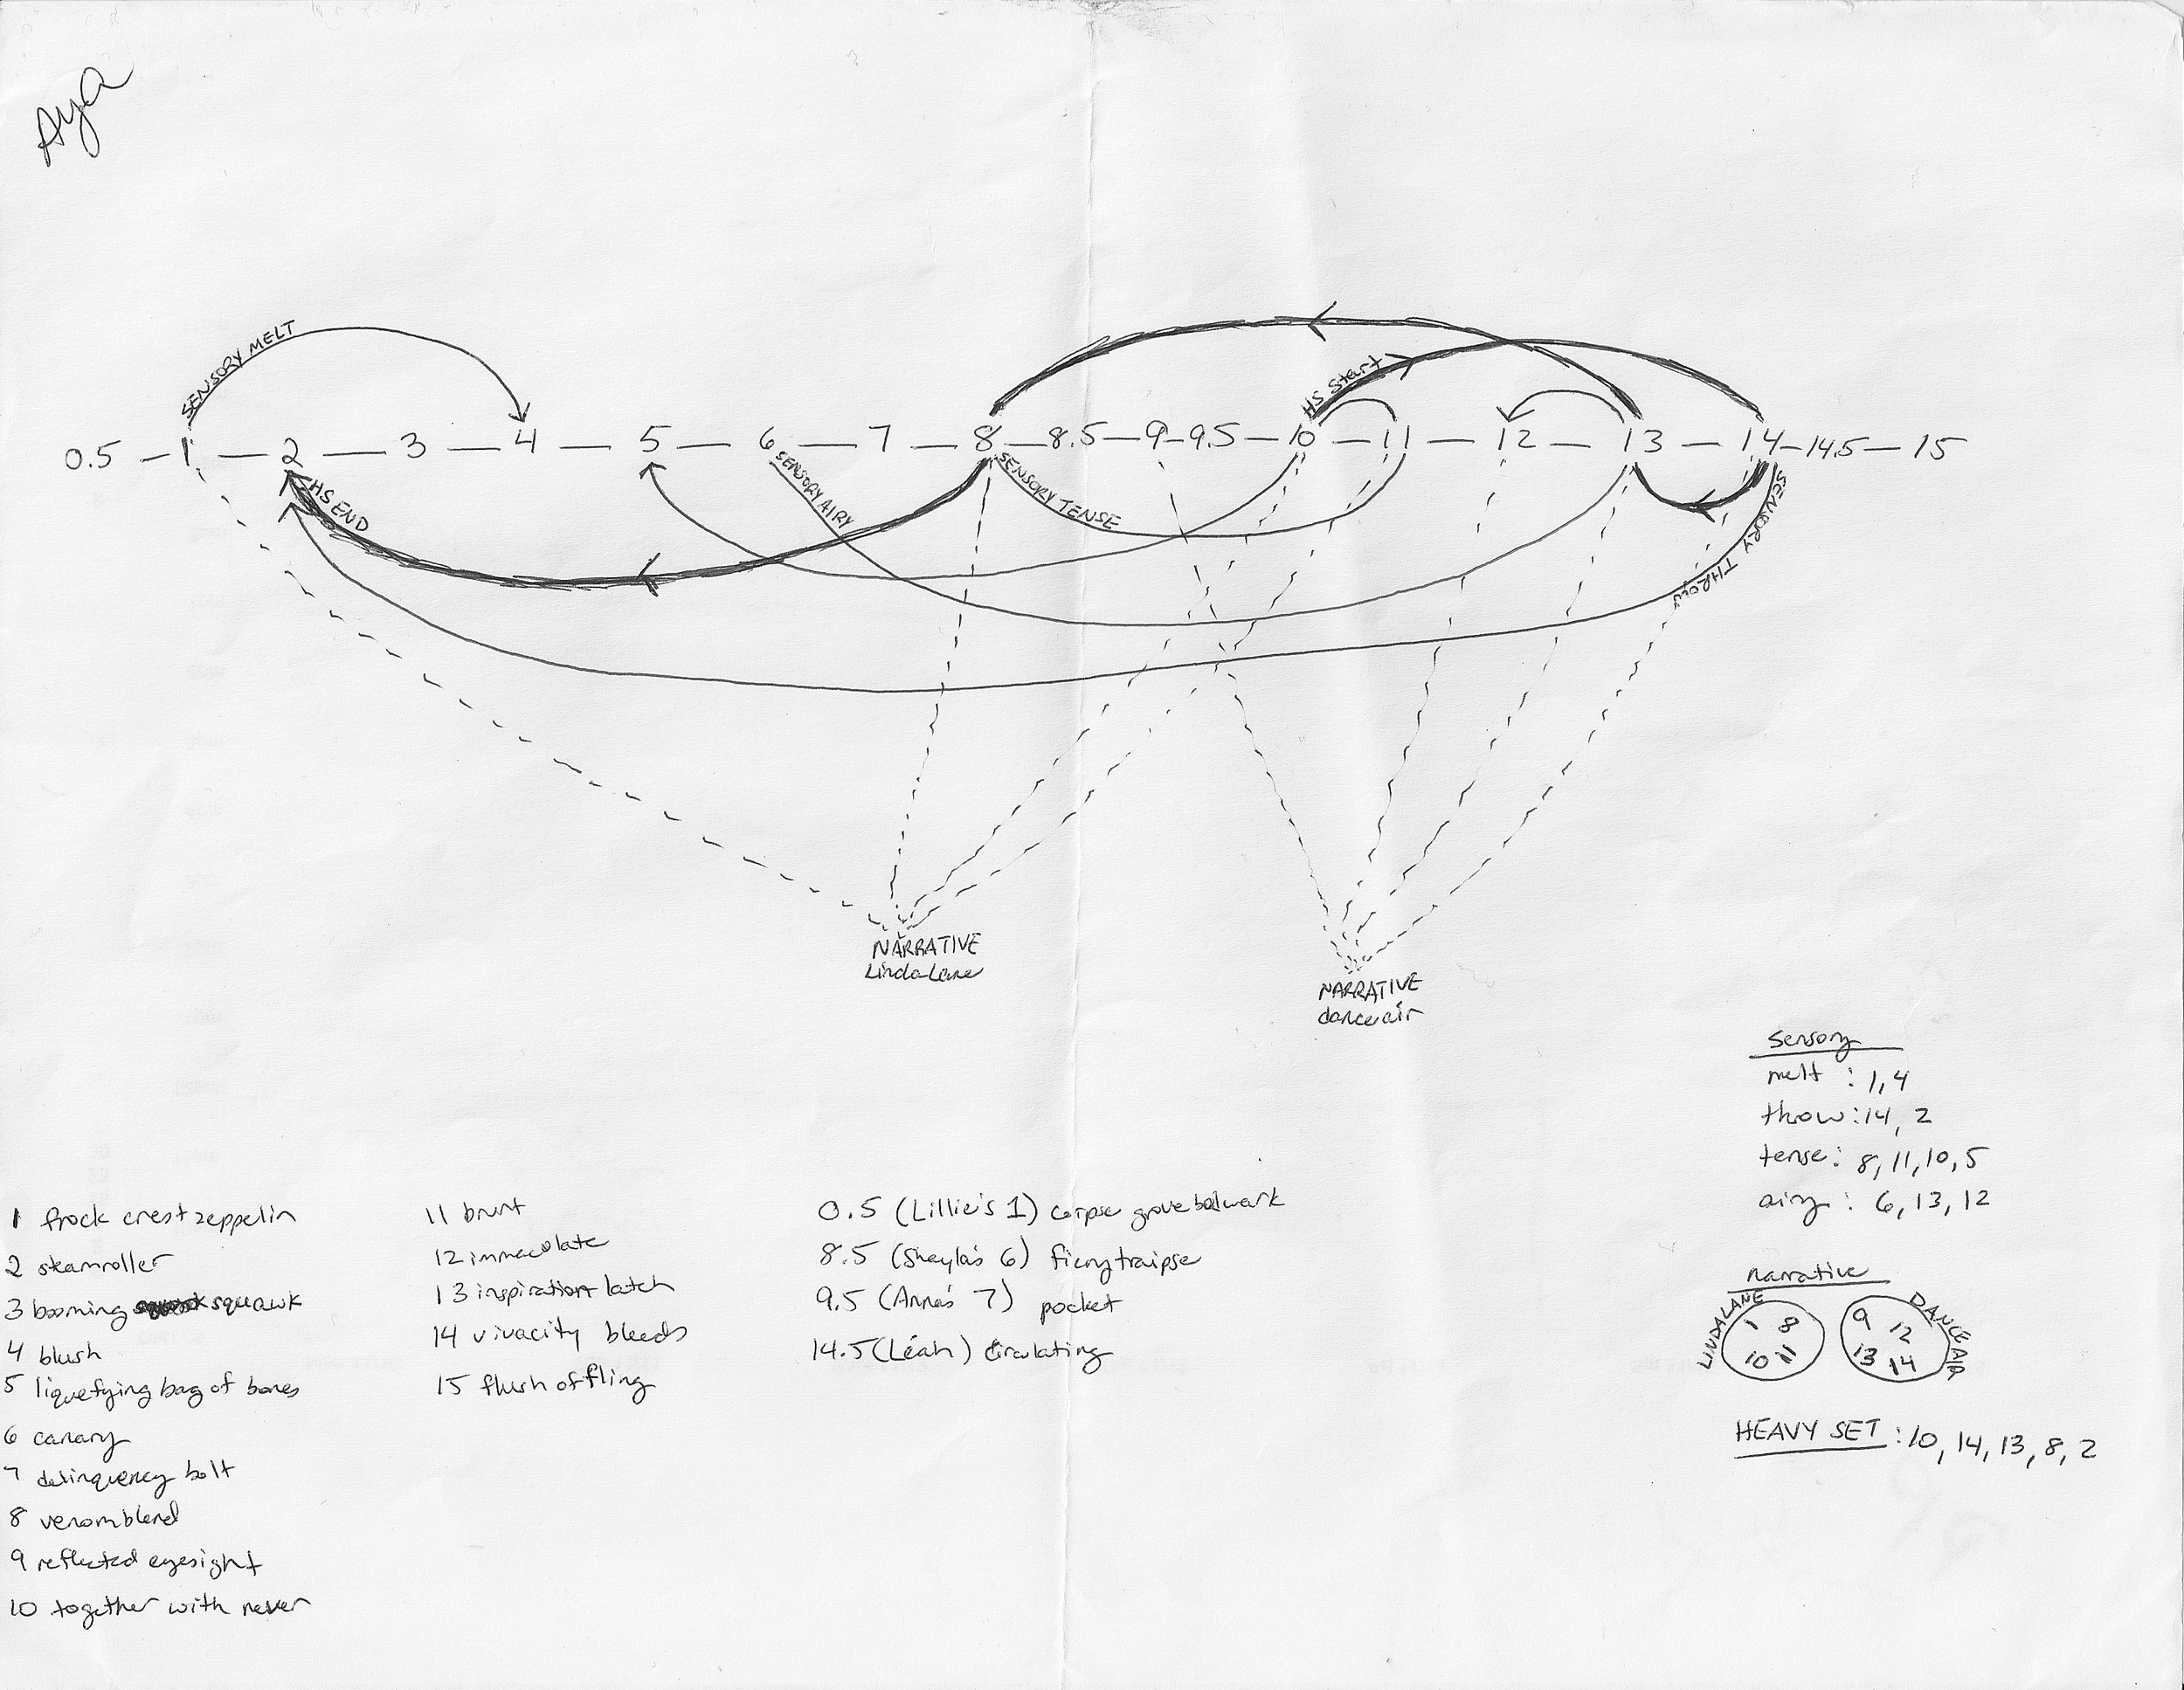 Aya
SENSORY MELT
HS Start
0.5 – 1 — 2 — 3 — 4 — 5 — 6 — 7 — 8 — 8.5 — 9 – 9.5 – 10 – 11 — 12 — 13 — 14 – 14.5 — 15
HS END
SENSORY AIRY
SENSORY TENSE
SENSORY THROW
NARRATIVE
Linda Lane
NARRATIVE
dance air
Sensory
melt : 1, 4
throw : 14, 2
tense : 8, 11, 10, 5
airy : 6, 13, 12
narrative
LINDA LANE
1 8
10 11
DANCE AIR
9 12
13 14
HEAVY SET : 10, 14, 13, 8, 2
1 frock crest zeppelin
2 steamroller
3 booming squawk
4 blush
5 liquefying bag of bones
6 canary
7 delinquency bolt
8 venom blend
9 reflected eyesight
10 together with never
11 brunt
12 immaculate
13 inspiration latch
14 vivacity bleeds
15 flush of fling
0.5 (Lillie's 1) corpse grove bulwark
8.5 (Shayla's 6) fiery traipse
9.5 (Anna's 7) pocket
14.5 (Leah) circulating